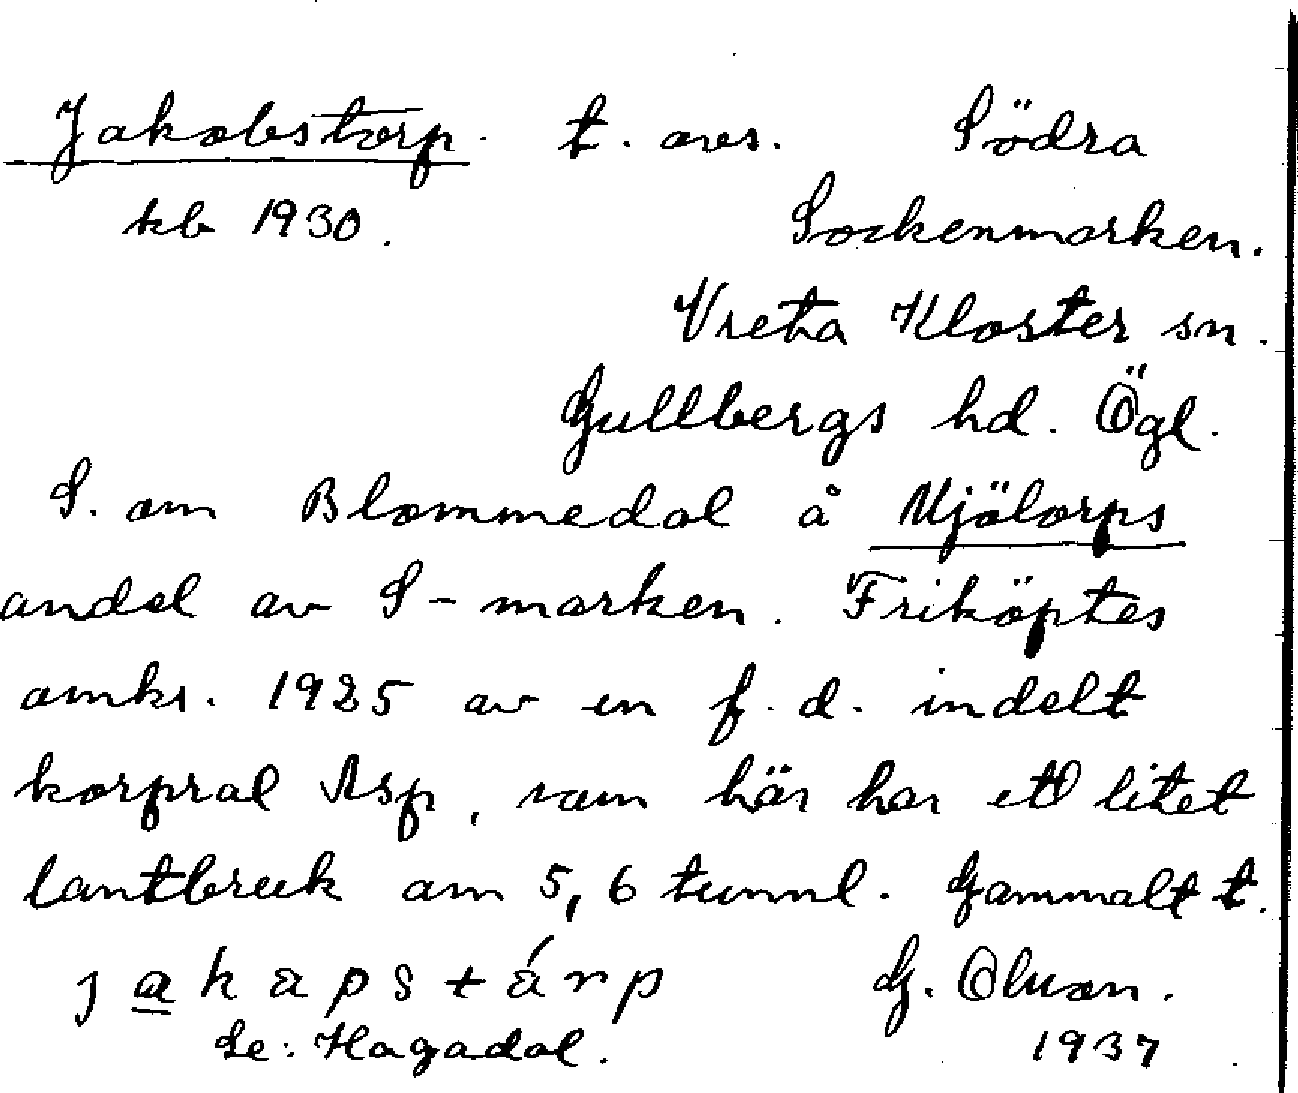 Jakobstorp. t. avs. Södra
kb 1930. Sockenmarken.
Vreta Kloster sn.
Gullbergs hd. Ögl.
S. om Blommedal å Mjölorps
andel av S-marken. Friköptes
omkr. 1925 av en f.d. indelt
korpral Asp, som här har ett litet
lantbruk om 5,6 tunnl. Gammalt t.
jakapstárp G. Olsson.
Se: Hagadal. 1937